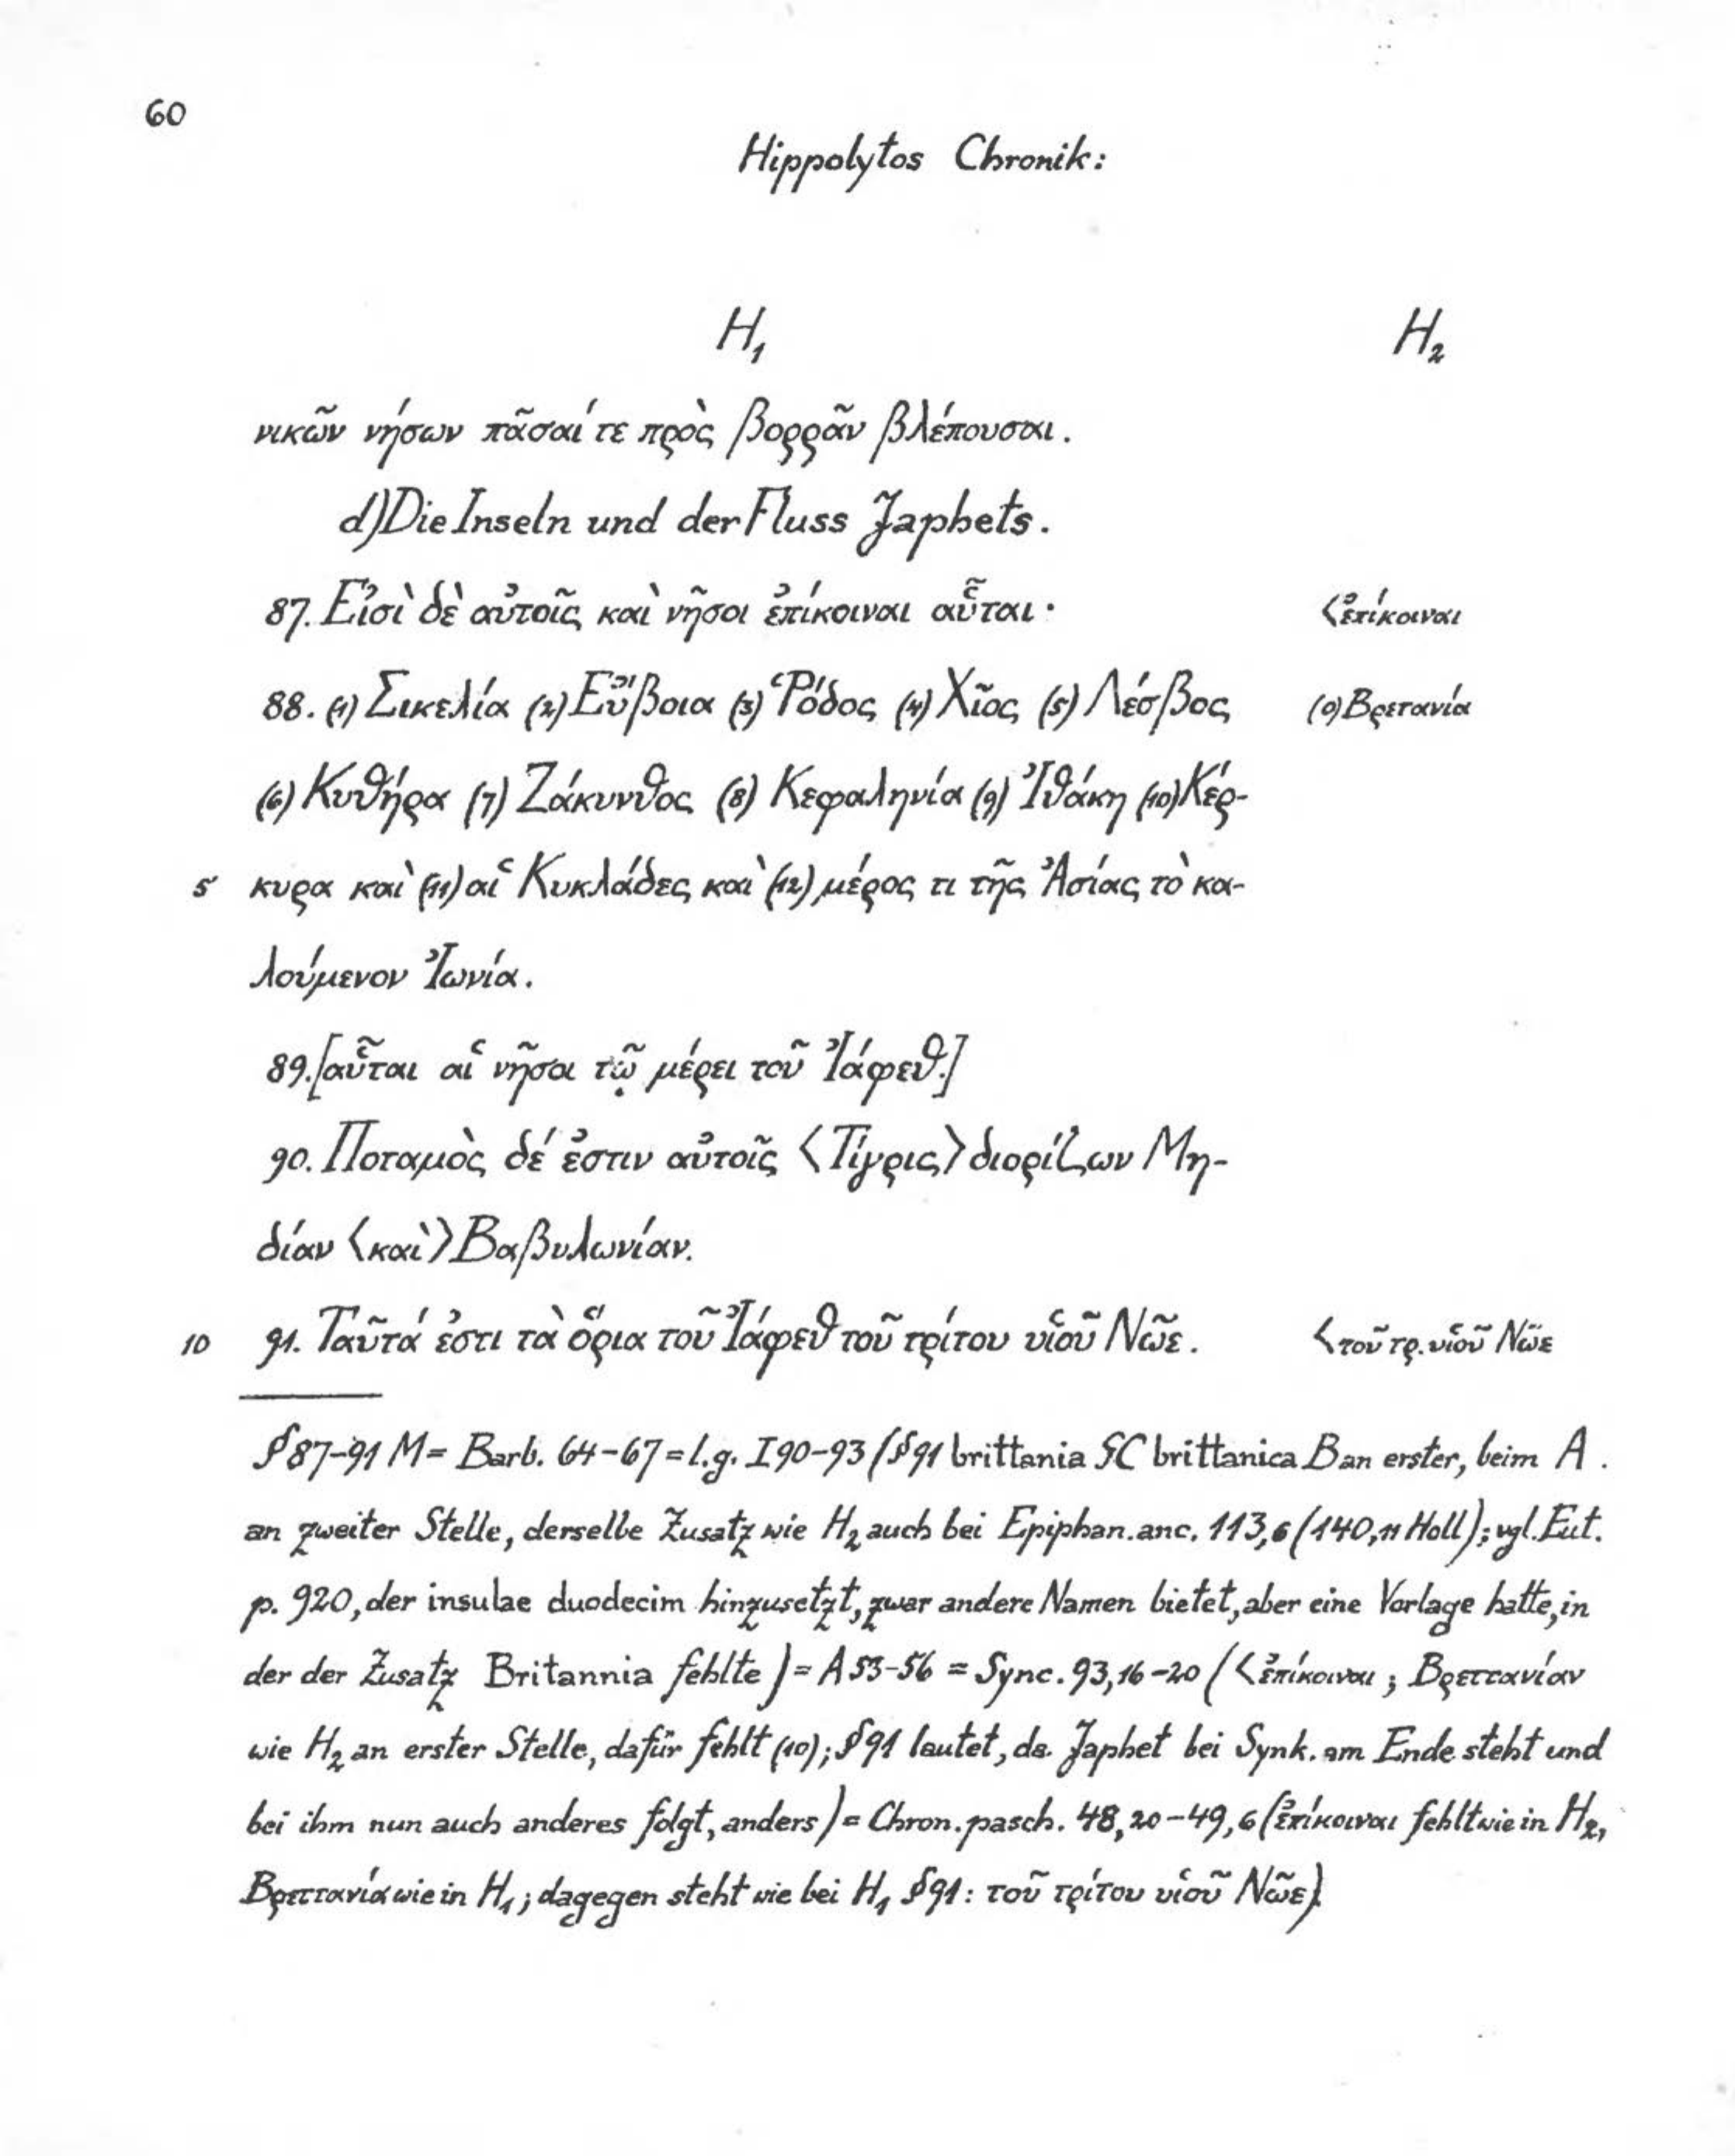 60
Hippolytos Chronik:
H₁ H₂
νικῶν νήσων πᾶσαί τε πρὸς βορρᾶν βλέπουσαι.
d) Die Inseln und der Fluss Japhets.
87. Εἰσὶ δὲ αὐτοῖς καὶ νῆσοι ἐπίκοιναι αὗται· <ἐπίκοιναι
88. (1) Σικελία (2) Εὔβοια (3) Ῥόδος (4) Χῖος (5) Λέσβος (0) Βρετανία
(6) Κυθήρα (7) Ζάκυνθος (8) Κεφαληνία (9) Ἰθάκη (10) Κέρ-
5 κυρα καὶ (11) αἱ Κυκλάδες καὶ (12) μέρος τι τῆς Ἀσίας τὸ κα-
λούμενον Ἰωνία.
89. [αὗται αἱ νῆσοι τῷ μέρει τοῦ Ἰάφεθ.]
90. Ποταμὸς δέ ἐστιν αὐτοῖς <Τίγρις> διορίζων Μη-
δίαν <καὶ> Βαβυλωνίαν.
10 91. Ταῦτά ἐστι τὰ ὅρια τοῦ Ἰάφεθ τοῦ τρίτου υἱοῦ Νῶε. <τοῦ τρ. υἱοῦ Νῶε
§ 87–91 M = Barb. 64–67 = l.g. I 90–93 (§ 91 brittania GC brittanica B an erster, beim A.
an zweiter Stelle, derselbe Zusatz wie H₂ auch bei Epiphan. anc. 113,6 (140,11 Holl); vgl. Eut.
p. 920, der insulae duodecim hinzusetzt, zwar andere Namen bietet, aber eine Vorlage hatte, in
der der Zusatz Britannia fehlte) = A 53–56 = Sync. 93,16–20 (<ἐπίκοιναι; Βρεττανίαν
wie H₂ an erster Stelle, dafür fehlt (10); § 91 lautet, da Japhet bei Synk. am Ende steht und
bei ihm nun auch anderes folgt, anders) = Chron. pasch. 48,20–49,6 (ἐπίκοιναι fehlt wie in H₂,
Βρεττανία wie in H₁; dagegen steht wie bei H₁ § 91: τοῦ τρίτου υἱοῦ Νῶε).